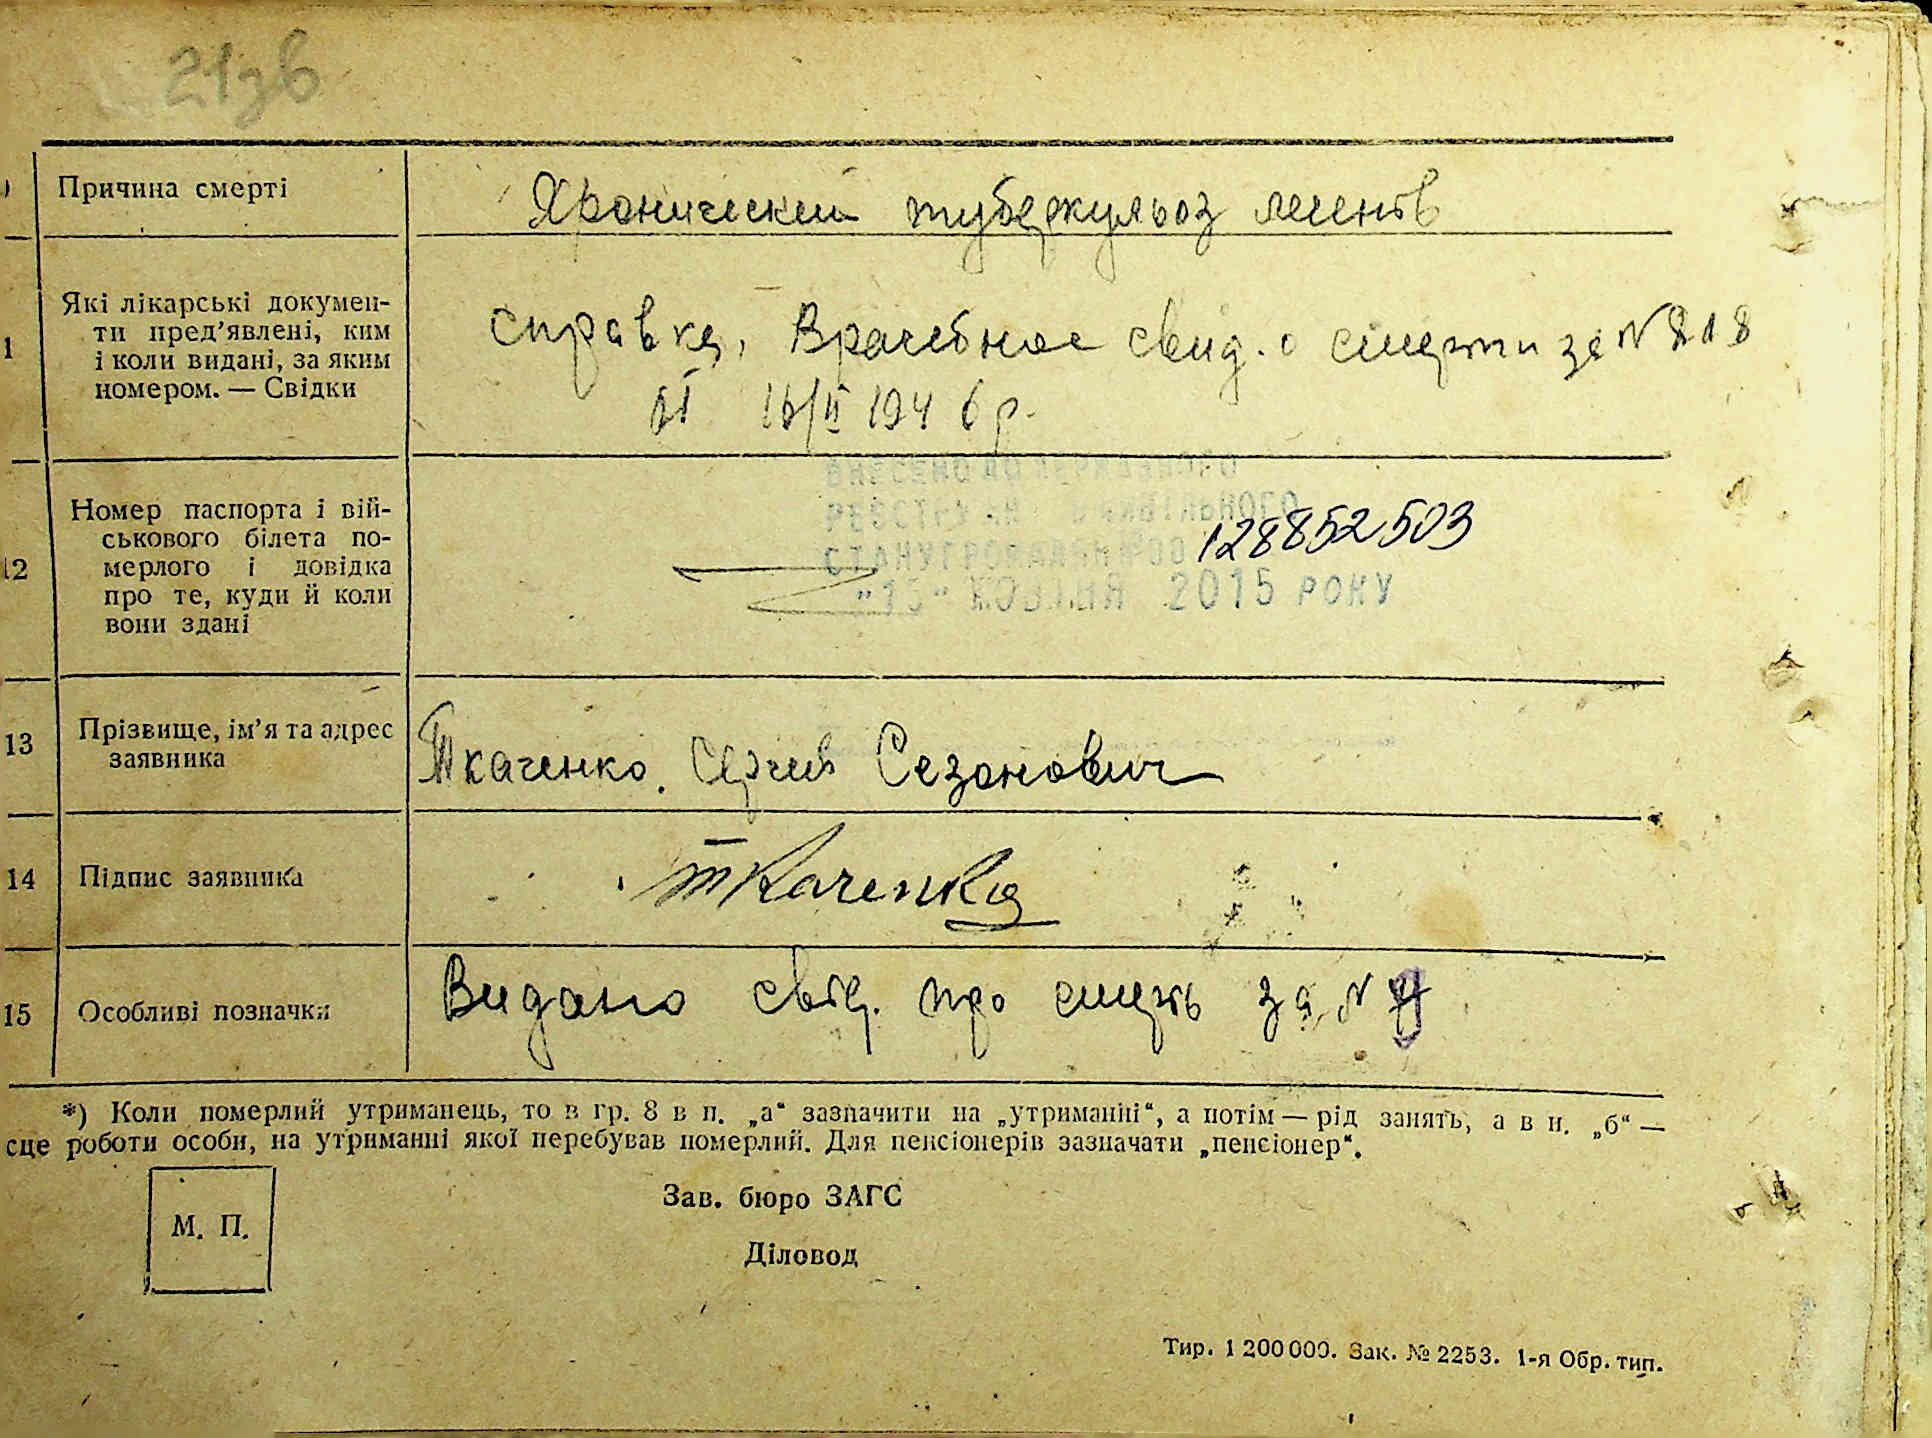 21зв
Причина смерті
Хронический туберкульоз легенів
1 Які лікарські докумен-
ти пред’явлені, ким
і коли видані, за яким
номером. — Свідки
справка, Врачебное свид. о смерти за № 818
16/II 1946 р.
ВНЕСЕНО ДО ДЕРЖАВНОГО
РЕЄСТРУ АКТІВ ЦИВІЛЬНОГО
СТАНУ ГРОМАДЯН №00 128852503
"15" ЖОВТНЯ 2015 РОКУ
12 Номер паспорта і вій-
ськового білета по-
мерлого і довідка
про те, куди й коли
вони здані
13 Прізвище, ім’я та адрес
заявника
Ткаченко. Сергей Сезонович
14 Підпис заявника
Ткаченко
15 Особливі позначки
Видано свід. про смерть за №
*) Коли померлий утриманець, то в гр. 8 в п. „а“ зазначити на „утриманні“, а потім — рід занять, а в н. „б“ —
сце роботи особи, на утриманні якої перебував померлий. Для пенсіонерів зазначати „пенсіонер“.
М. П.
Зав. бюро ЗАГС
Діловод
Тир. 1 200 000. Зак. № 2253. 1-я Обр. тип.